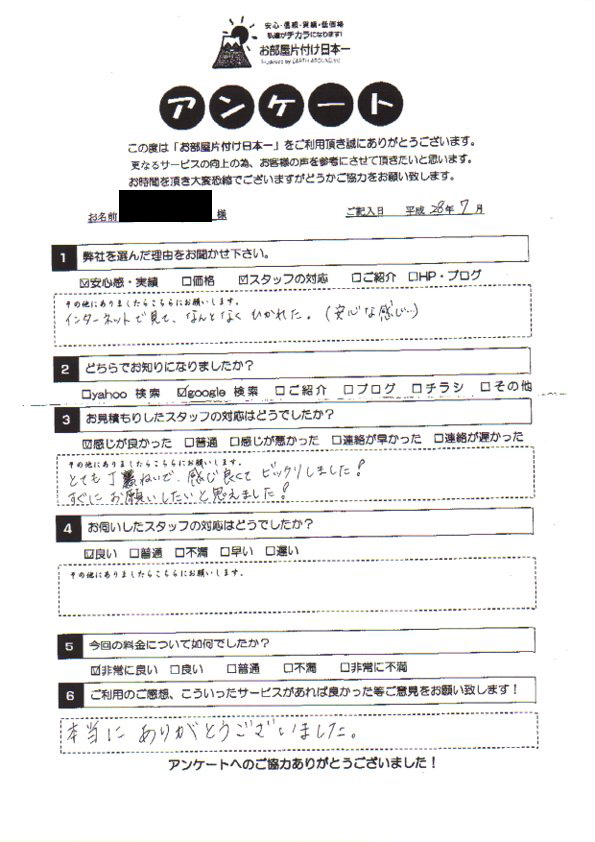 安心・信頼・実績・低価格
私達がチカラになります!
お部屋片付け日本一
アンケート
この度は「お部屋片付け日本一」をご利用頂き誠にありがとうございます。
更なるサービスの向上の為、お客様の声を参考にさせて頂きたいと思います。
お時間を頂き大変恐縮でございますがどうかご協力をお願い致します。
お名前 様 ご記入日 平成 28年 7月
1 弊社を選んだ理由をお聞かせ下さい。
☑安心感・実績 □価格 ☑スタッフの対応 □ご紹介 □HP・ブログ
その他にありましたらこちらにお願いします。
インターネットで見て、なんとなく ひかれた。(安心な感じ…)
2 どちらでお知りになりましたか?
□yahoo 検索 ☑google 検索 □ご紹介 □ブログ □チラシ □その他
3 お見積もりしたスタッフの対応はどうでしたか?
☑感じが良かった □普通 □感じが悪かった □連絡が早かった □連絡が遅かった
その他にありましたらこちらにお願いします。
とても丁ねいで、感じ良くて ビックリしました!
すぐに お願いしたいと思えました!
4 お伺いしたスタッフの対応はどうでしたか?
☑良い □普通 □不満 □早い □遅い
その他にありましたらこちらにお願いします。
5 今回の料金について如何でしたか?
☑非常に良い □良い □普通 □不満 □非常に不満
6 ご利用のご感想、こういったサービスがあれば良かった等ご意見をお願い致します!
本当に ありがとうございました。
アンケートへのご協力ありがとうございました!